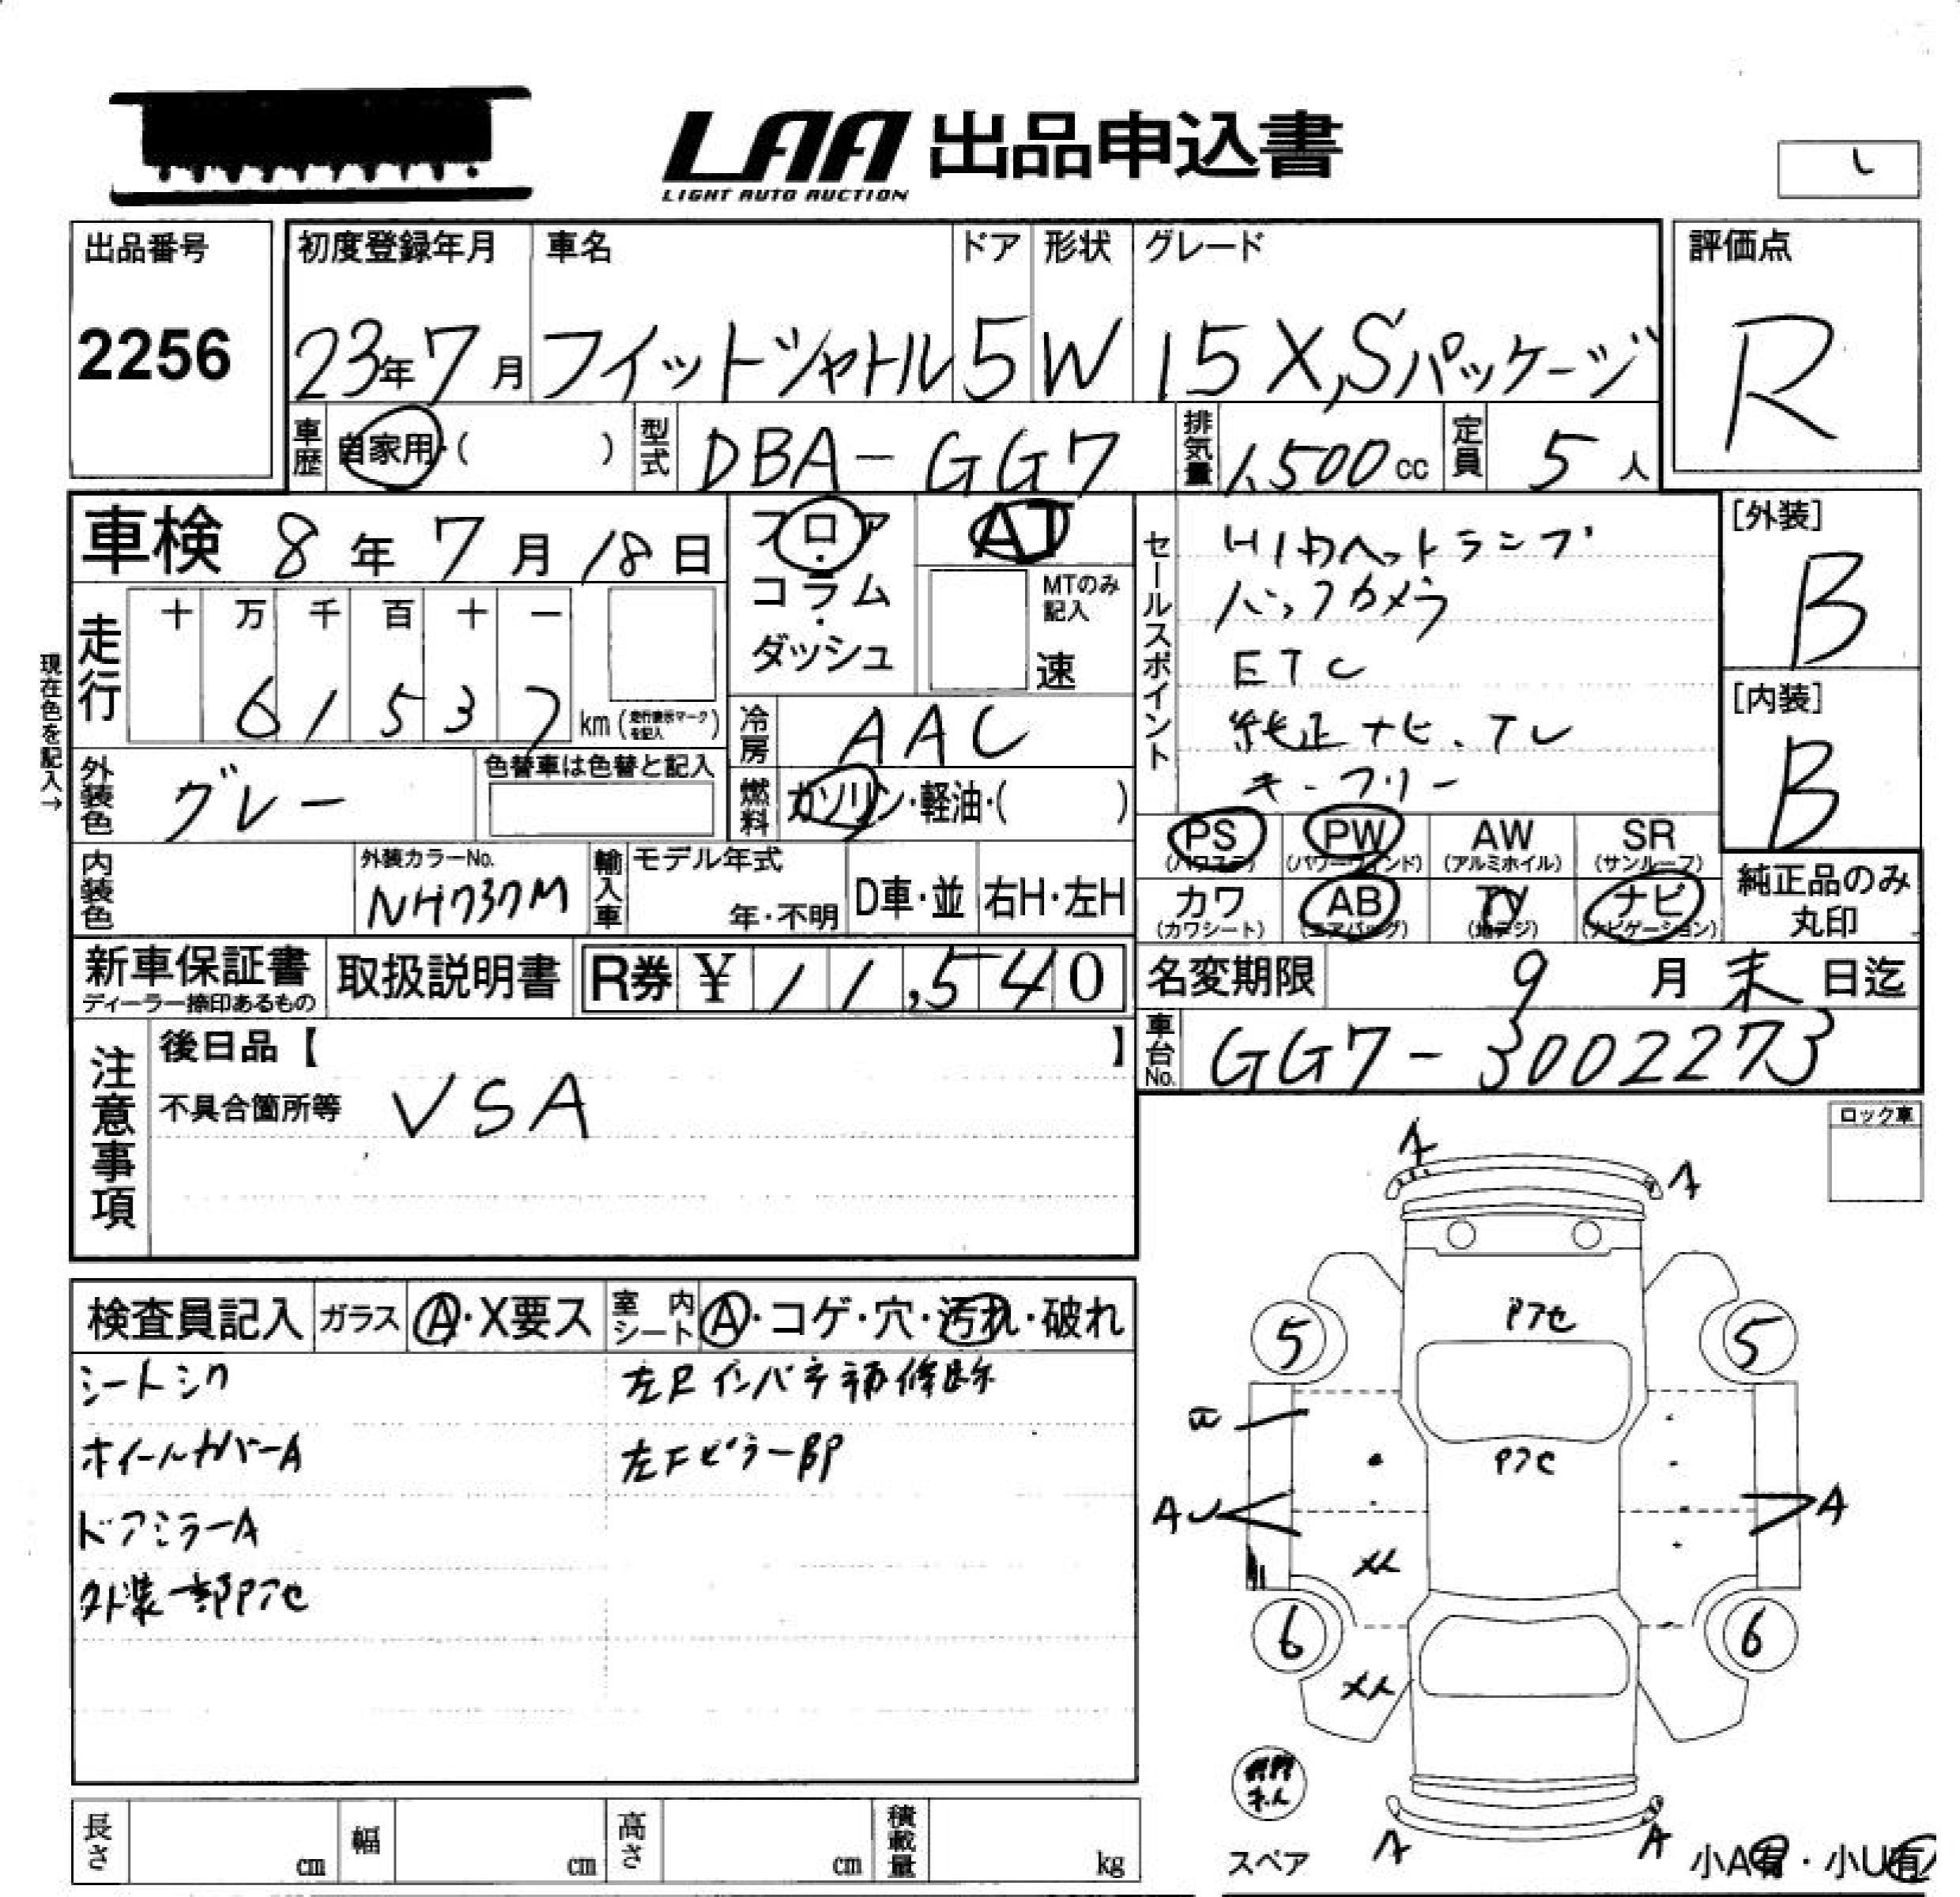 LAA 出品申込書
LIGHT AUTO AUCTION
出品番号
2256
初度登録年月
23年7月
車名
フィットシャトル
ドア
5
形状
W
グレード
15X,Sパッケージ
評価点
R
車歴 自家用・( )
型式 DBA-GG7
排気量 1,500cc
定員 5人
車検 8年7月18日
フロア・コラム・ダッシュ
AT
MTのみ記入
速
セールスポイント
HIDヘットランプ
バックカメラ
ETC
純正ナビ、TV
キーフリー
[外装]
B
[内装]
B
現在色を記入→
走行
十 万 千 百 十 一
6 1 5 3 7 km
冷房 AAC
外装色 グレー
色替車は色替と記入
燃料 ガソリン・軽油・( )
PS (パワステ)
PW (パワーウィンド)
AW (アルミホイル)
SR (サンルーフ)
カワ (カワシート)
AB (エアバッグ)
TV (地デジ)
ナビ (ナビゲーション)
純正品のみ丸印
内装色
外装カラーNo.
NH737M
輸入車
モデル年式
年・不明
D車・並
右H・左H
新車保証書
ディーラー捺印あるもの
取扱説明書
R券 ¥ 11,540
名変期限 9月末日迄
車台No. GG7-3002273
注意事項
後日品【 】
不具合箇所等 VSA
ロック車
検査員記入
ガラス A・X要ス
室内シート A・コゲ・穴・汚れ・破れ
シートシワ
ホイールカバーA
ドアミラーA
外装一部Pアセ
左Rインパネ補修跡
左Fピラー部P
A
A
Pアセ
5
5
Pアセ
A
A
6
6
スペア
A
A
小A有・小U有
長さ cm
幅 cm
高さ cm
積載量 kg